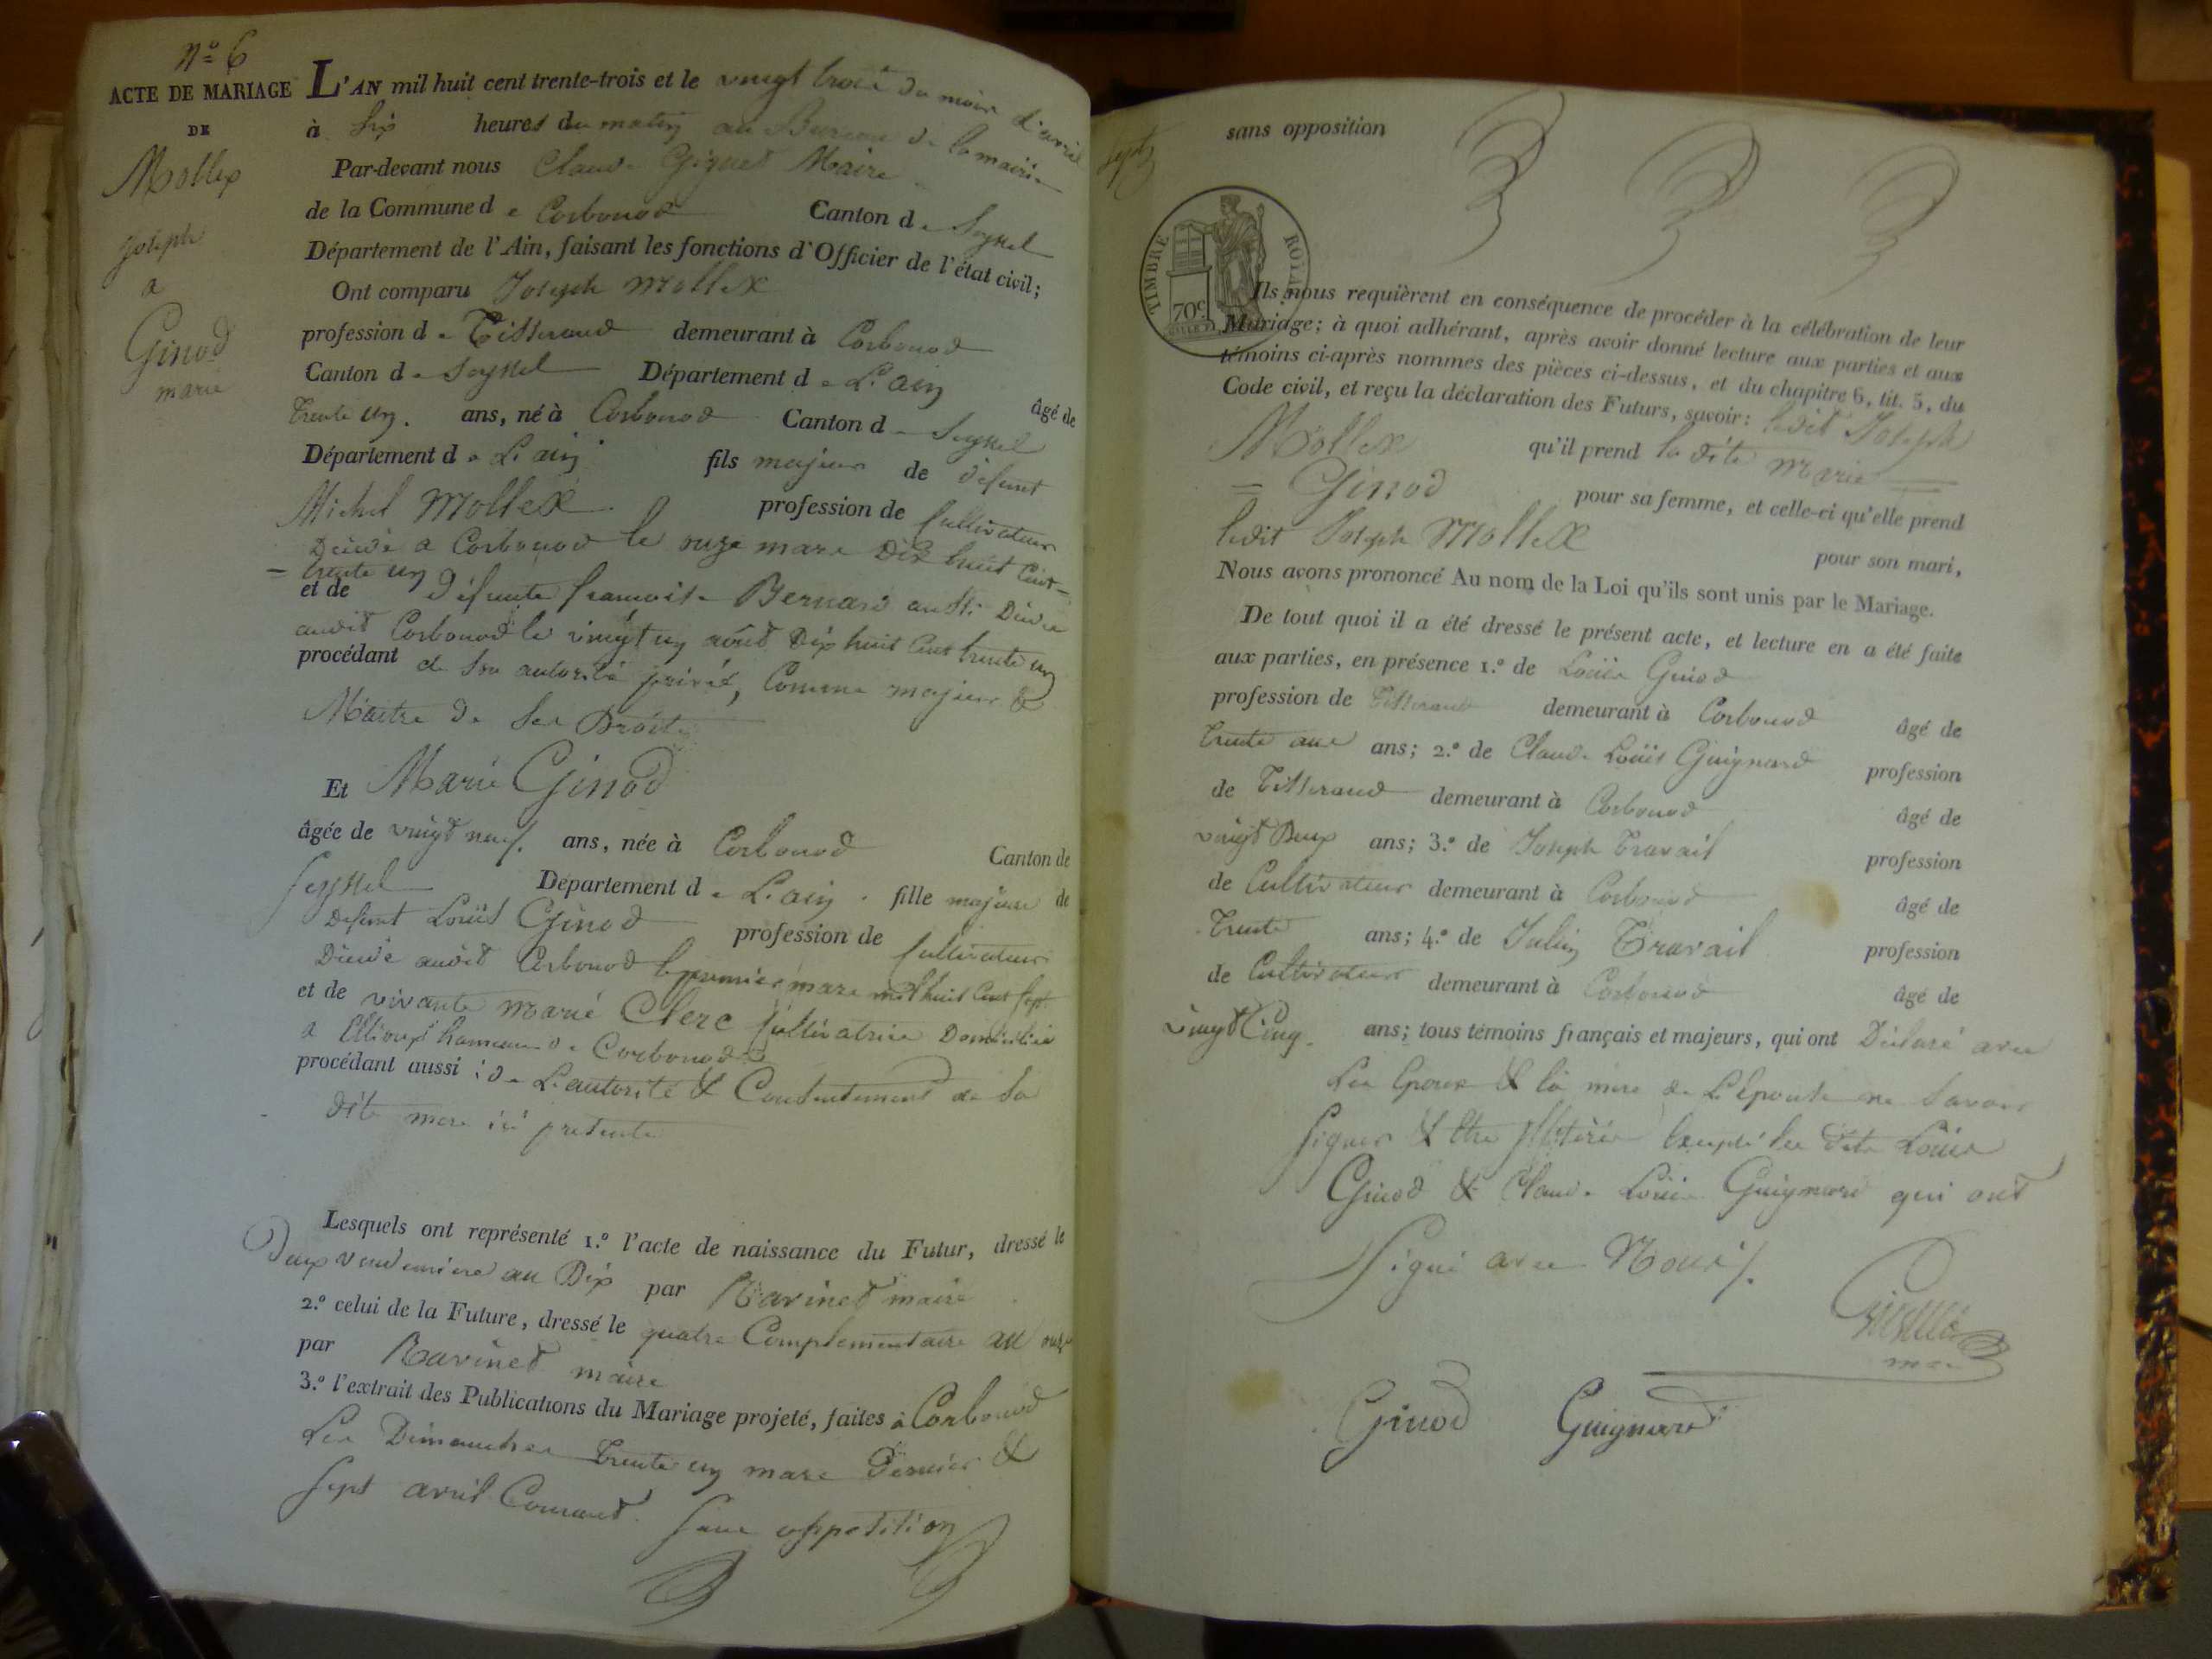 N.o 6
ACTE DE MARIAGE
DE
Mollex
Joseph
a
Ginod
marie
L'AN mil huit cent trente-trois et le vingt trois du mois d'avril
à Six heures du matin au Bureau de la mairie
Par-devant nous Claude Giguet Maire
de la Commune de Corbonod Canton de Seyssel
Département de l'Ain, faisant les fonctions d'Officier de l'état civil;
Ont comparu Joseph Mollex
profession de Tisserand demeurant à Corbonod
Canton de Seyssel Département de L'ain âgé de
trente un. ans, né à Corbonod Canton de Seyssel
Département de L'ain fils majeur de défunt
Michel Mollex profession de Cultivateur
Décédé a Corbonod le onze mars Dix huit Cent
= trente un
et de défunte francoise Bernard aussi Décédée
audit Corbonod le vingt un août Dix huit Cent trente un
procédant de son autorité privée, Comme majeur &
Maitre de Ses Droits
Et Marie Ginod
âgée de vingt neuf. ans, née à Corbonod Canton de
Seyssel Département de L'ain. fille majeure de
défunt Louis Ginod profession de Cultivateur
Décédé audit Corbonod le premier mars mil huit Cent Sept
et de vivante Marie Clerc Cultivatrice Domiciliée
a Ellioux hameau de Corbonod
procédant aussi : de L'autorité & Consentement de Sa
dite mere ici presente
Lesquels ont représenté 1.o l'acte de naissance du Futur, dressé le
Deux vendemiere an Dix par Ravinet maire
2.o celui de la Future, dressé le quatre Complementaire an onze
par Ravinet maire
3.o l'extrait des Publications du Mariage projeté, faites à Corbonod
Les Dimanches trente un mars Dernier &
Sept avril Courant. Sans opposition
Sept
sans opposition
TIMBRE ROYAL
70c
Ils nous requièrent en conséquence de procéder à la célébration de leur
Mariage; à quoi adhérant, après avoir donné lecture aux parties et aux
témoins ci-après nommes des pièces ci-dessus, et du chapitre 6, tit. 5, du
Code civil, et reçu la déclaration des Futurs, savoir: ledit Joseph
Mollex qu'il prend la dite Marie
= Ginod pour sa femme, et celle-ci qu'elle prend
ledit Joseph Mollex pour son mari,
Nous avons prononcé Au nom de la Loi qu'ils sont unis par le Mariage.
De tout quoi il a été dressé le présent acte, et lecture en a été faite
aux parties, en présence 1.o de Louis Ginod
profession de Tisserand demeurant à Corbonod âgé de
trente ans; 2.o de Claude Louis Guignard profession
de Tisserand demeurant à Corbonod âgé de
vingt Deux ans; 3.o de Joseph Travail profession
de Cultivateur demeurant à Corbonod âgé de
Trente ans; 4.o de Julien Travail profession
de Cultivateur demeurant à Corbonod âgé de
vingt Cinq. ans; tous témoins français et majeurs, qui ont Déclaré avec
Les Epoux & la mere de L'Epouse ne Savoir
Signer & Etre illitérés Excepté les dits Louis
Ginod & Claude Louis Guignard qui ont
Signé avec Nous.
Ginod Guignard